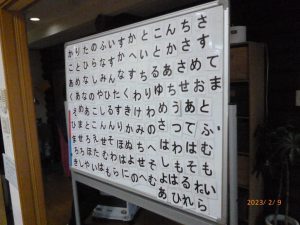 かりたのふいすかとこんとちさ
ことひらなすかへいとかさす
あめなしみんなすちるあさめて
くあなのやひたくわりゆせおま
えめあこしるすきけむめうあと
ひまとこんんりかみのさつてふ
ませろえせそほぬちへはわはむ
ちろほたむわはよせそしもそも
きしやいはもらにのへむよはるねい
あひれら
2023/2/9